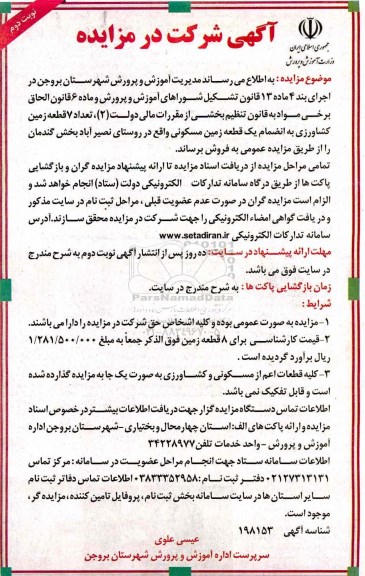 نوبت دوم
آگهی شرکت در مزایده
جمهوری اسلامی ایران
وزارت آموزش و پرورش
موضوع مزایده : به اطلاع می رساند مدیریت آموزش و پرورش شهرستان بروجن در
اجرای بند ۴ ماده ۱۳ قانون تشکیل شوراهای آموزش و پرورش و ماده ۶ قانون الحاق
برخی مواد به قانون تنظیم بخشی از مقررات مالی دولت (۲)، تعداد ۷ قطعه زمین
کشاورزی به انضمام یک قطعه زمین مسکونی واقع در روستای نصیر آباد بخش گندمان
را از طریق مزایده عمومی به فروش برساند.
تمامی مراحل مزایده از دریافت اسناد مزایده تا ارائه پیشنهاد مزایده گران و بازگشایی
پاکت ها از طریق درگاه سامانه تدارکات الکترونیکی دولت (ستاد) انجام خواهد شد و
الزام است مزایده گران در صورت عدم عضویت قبلی ، مراحل ثبت نام در سایت مذکور
و دریافت گواهی امضاء الکترونیکی را جهت شرکت در مزایده محقق سازند. آدرس
سامانه تدارکات الکترونیکی www.setadiran.ir
مهلت ارائه پیشنهاد در سایت: ده روز پس از انتشار آگهی نوبت دوم به شرح مندرج
در سایت فوق می باشد.
زمان بازگشایی پاکت ها : به شرح مندرج در سایت.
شرایط :
۱- مزایده به صورت عمومی بوده و کلیه اشخاص حق شرکت در مزایده را دارا می باشند.
۲- قیمت کارشناسی برای ۸ قطعه زمین فوق الذکر جمعاً به مبلغ ۱/۲۸۱/۵۰۰/۰۰۰
ریال برآورد گردیده است .
۳- کلیه قطعات اعم از مسکونی و کشاورزی به صورت یک جا به مزایده گذارده شده
است و قابل تفکیک نمی باشد.
اطلاعات تماس دستگاه مزایده گزار جهت دریافت اطلاعات بیشتر در خصوص اسناد
مزایده و ارائه پاکت های الف: استان چهارمحال و بختیاری -شهرستان بروجن اداره
آموزش و پرورش -واحد خدمات تلفن ۳۴۲۲۸۹۷۷
اطلاعات سامانه ستاد جهت انجام مراحل عضویت در سامانه : مرکز تماس
۰۲۱۲۷۳۱۳۱۳۱ دفتر ثبت نام : ۰۳۸۳۳۳۵۲۹۵۸ اطلاعات تماس دفاتر ثبت نام
سایر استان ها در سایت سامانه بخش ثبت نام ، پروفایل تامین کننده ، مزایده گر ،
موجود است.
شناسه آگهی ۱۹۸۱۵۳
عیسی علوی
سرپرست اداره آموزش و پرورش شهرستان بروجن
ParsNamadData